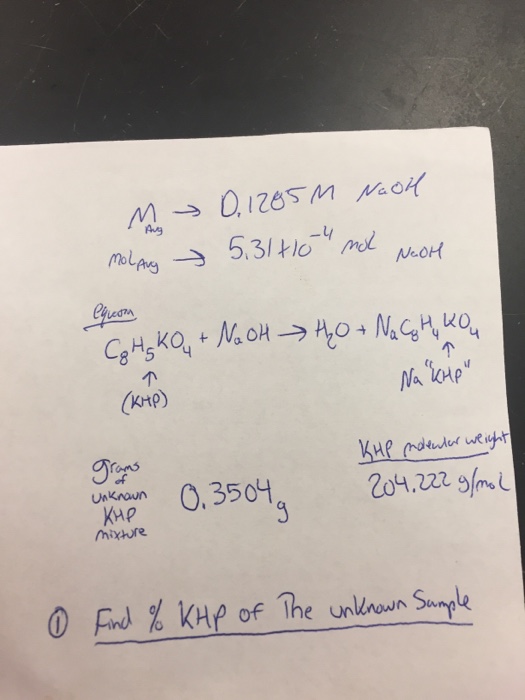 M Avg → 0.1285 M NaOH
mol Avg → 5.31*10⁻⁴ mol NaOH
C₈H₅KO₄ + NaOH → H₂O + NaC₈H₄KO₄
↑ ↑
(KHP) Na "KHP"
grams of unknown KHP mixture 0.3504 g
KHP molecular weight
204.222 g/mol
① Find % KHP of The unknown Sample